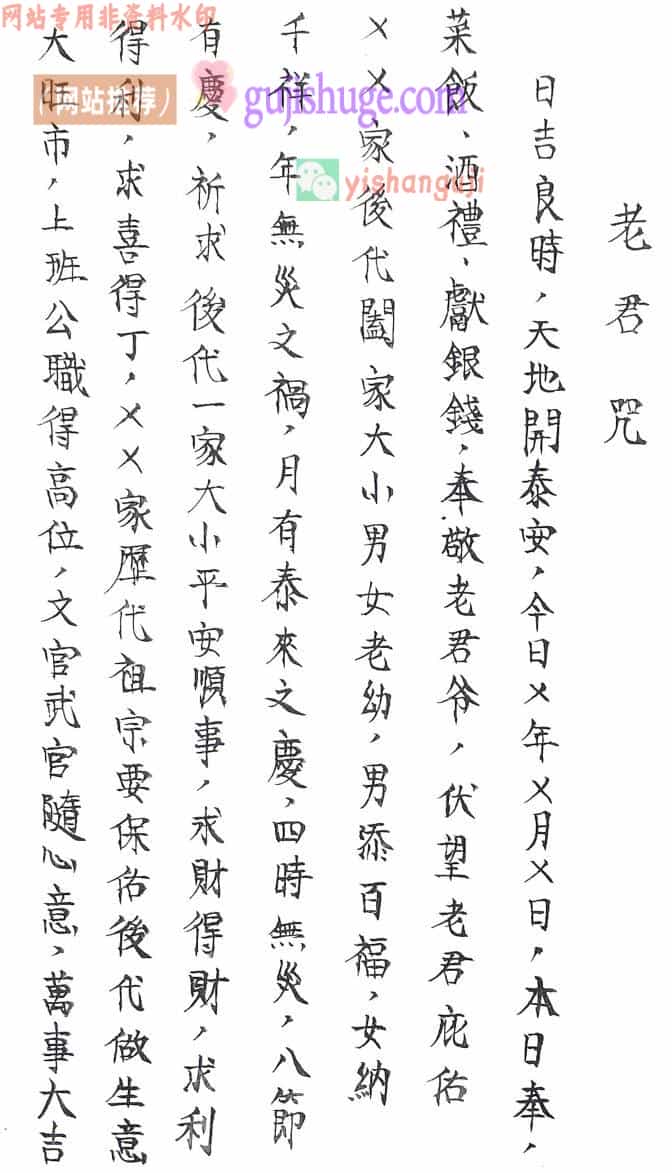 网站专用非资料水印
（网站推荐）
gujishuge.com
yishanguji
老君咒
日吉良時，天地開泰安，今日××年×月×日，本日奉，
菜飯、酒禮、獻銀錢，奉敬老君爷，伏望老君庇佑
××家後代闔家大小男女老幼，男添百福，女納
千祥，年無災文禍，月有泰來之慶，四時無災，八節
有慶，祈求後代一家大小平安順事，求財得財，求利
得利，求喜得丁，××家歷代祖宗要保佑後代做生意
大旺市，上班公職得高位，文官武官隨心意，萬事大吉